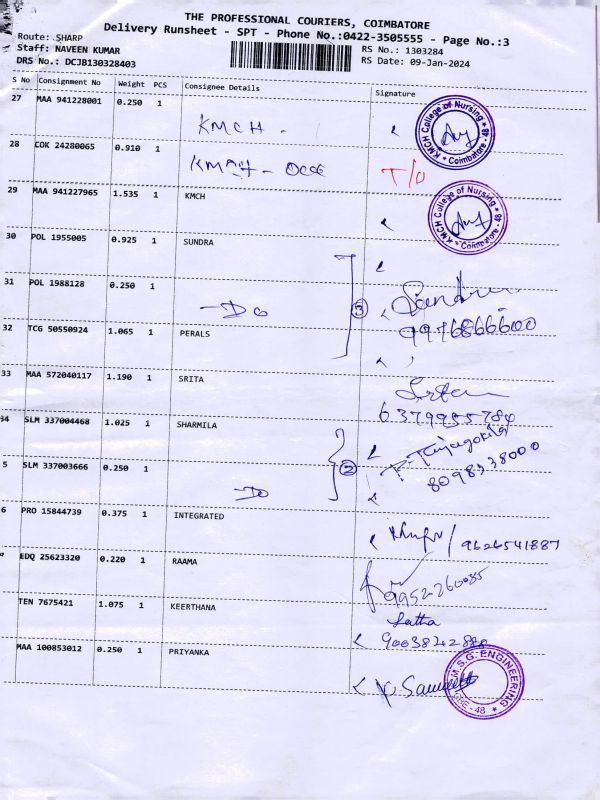 THE PROFESSIONAL COURIERS, COIMBATORE
Delivery Runsheet - SPT - Phone No.:0422-3505555 - Page No.:3
Route: SHARP
Staff: NAVEEN KUMAR RS No.: 1303284
DRS No.: DCJB130328403 RS Date: 09-Jan-2024
S No Consignment No Weight PCS Consignee Details Signature
27 MAA 941228001 0.250 1 KMCH -
KMCH College of Nursing Coimbatore - 48
28 COK 24280065 0.910 1 T/O
29 MAA 941227965 1.535 1 KMCH
KMCH College of Nursing Coimbatore - 48
30 POL 1955005 0.925 1 SUNDRA
31 POL 1988128 0.250 1 - Do 3
9976866600
32 TCG 50550924 1.065 1 PERALS
33 MAA 572040117 1.190 1 SRITA
6379955784
34 SLM 337004468 1.025 1 SHARMILA
5 SLM 337003666 0.250 1 - Do 2 8098338000
6 PRO 15844739 0.375 1 INTEGRATED 9626541887
EDQ 25623320 0.220 1 RAAMA 9952260035
TEN 7675421 1.075 1 KEERTHANA Latha
MAA 100853012 0.250 1 PRIYANKA
M.S.G. ENGINEERING - 48